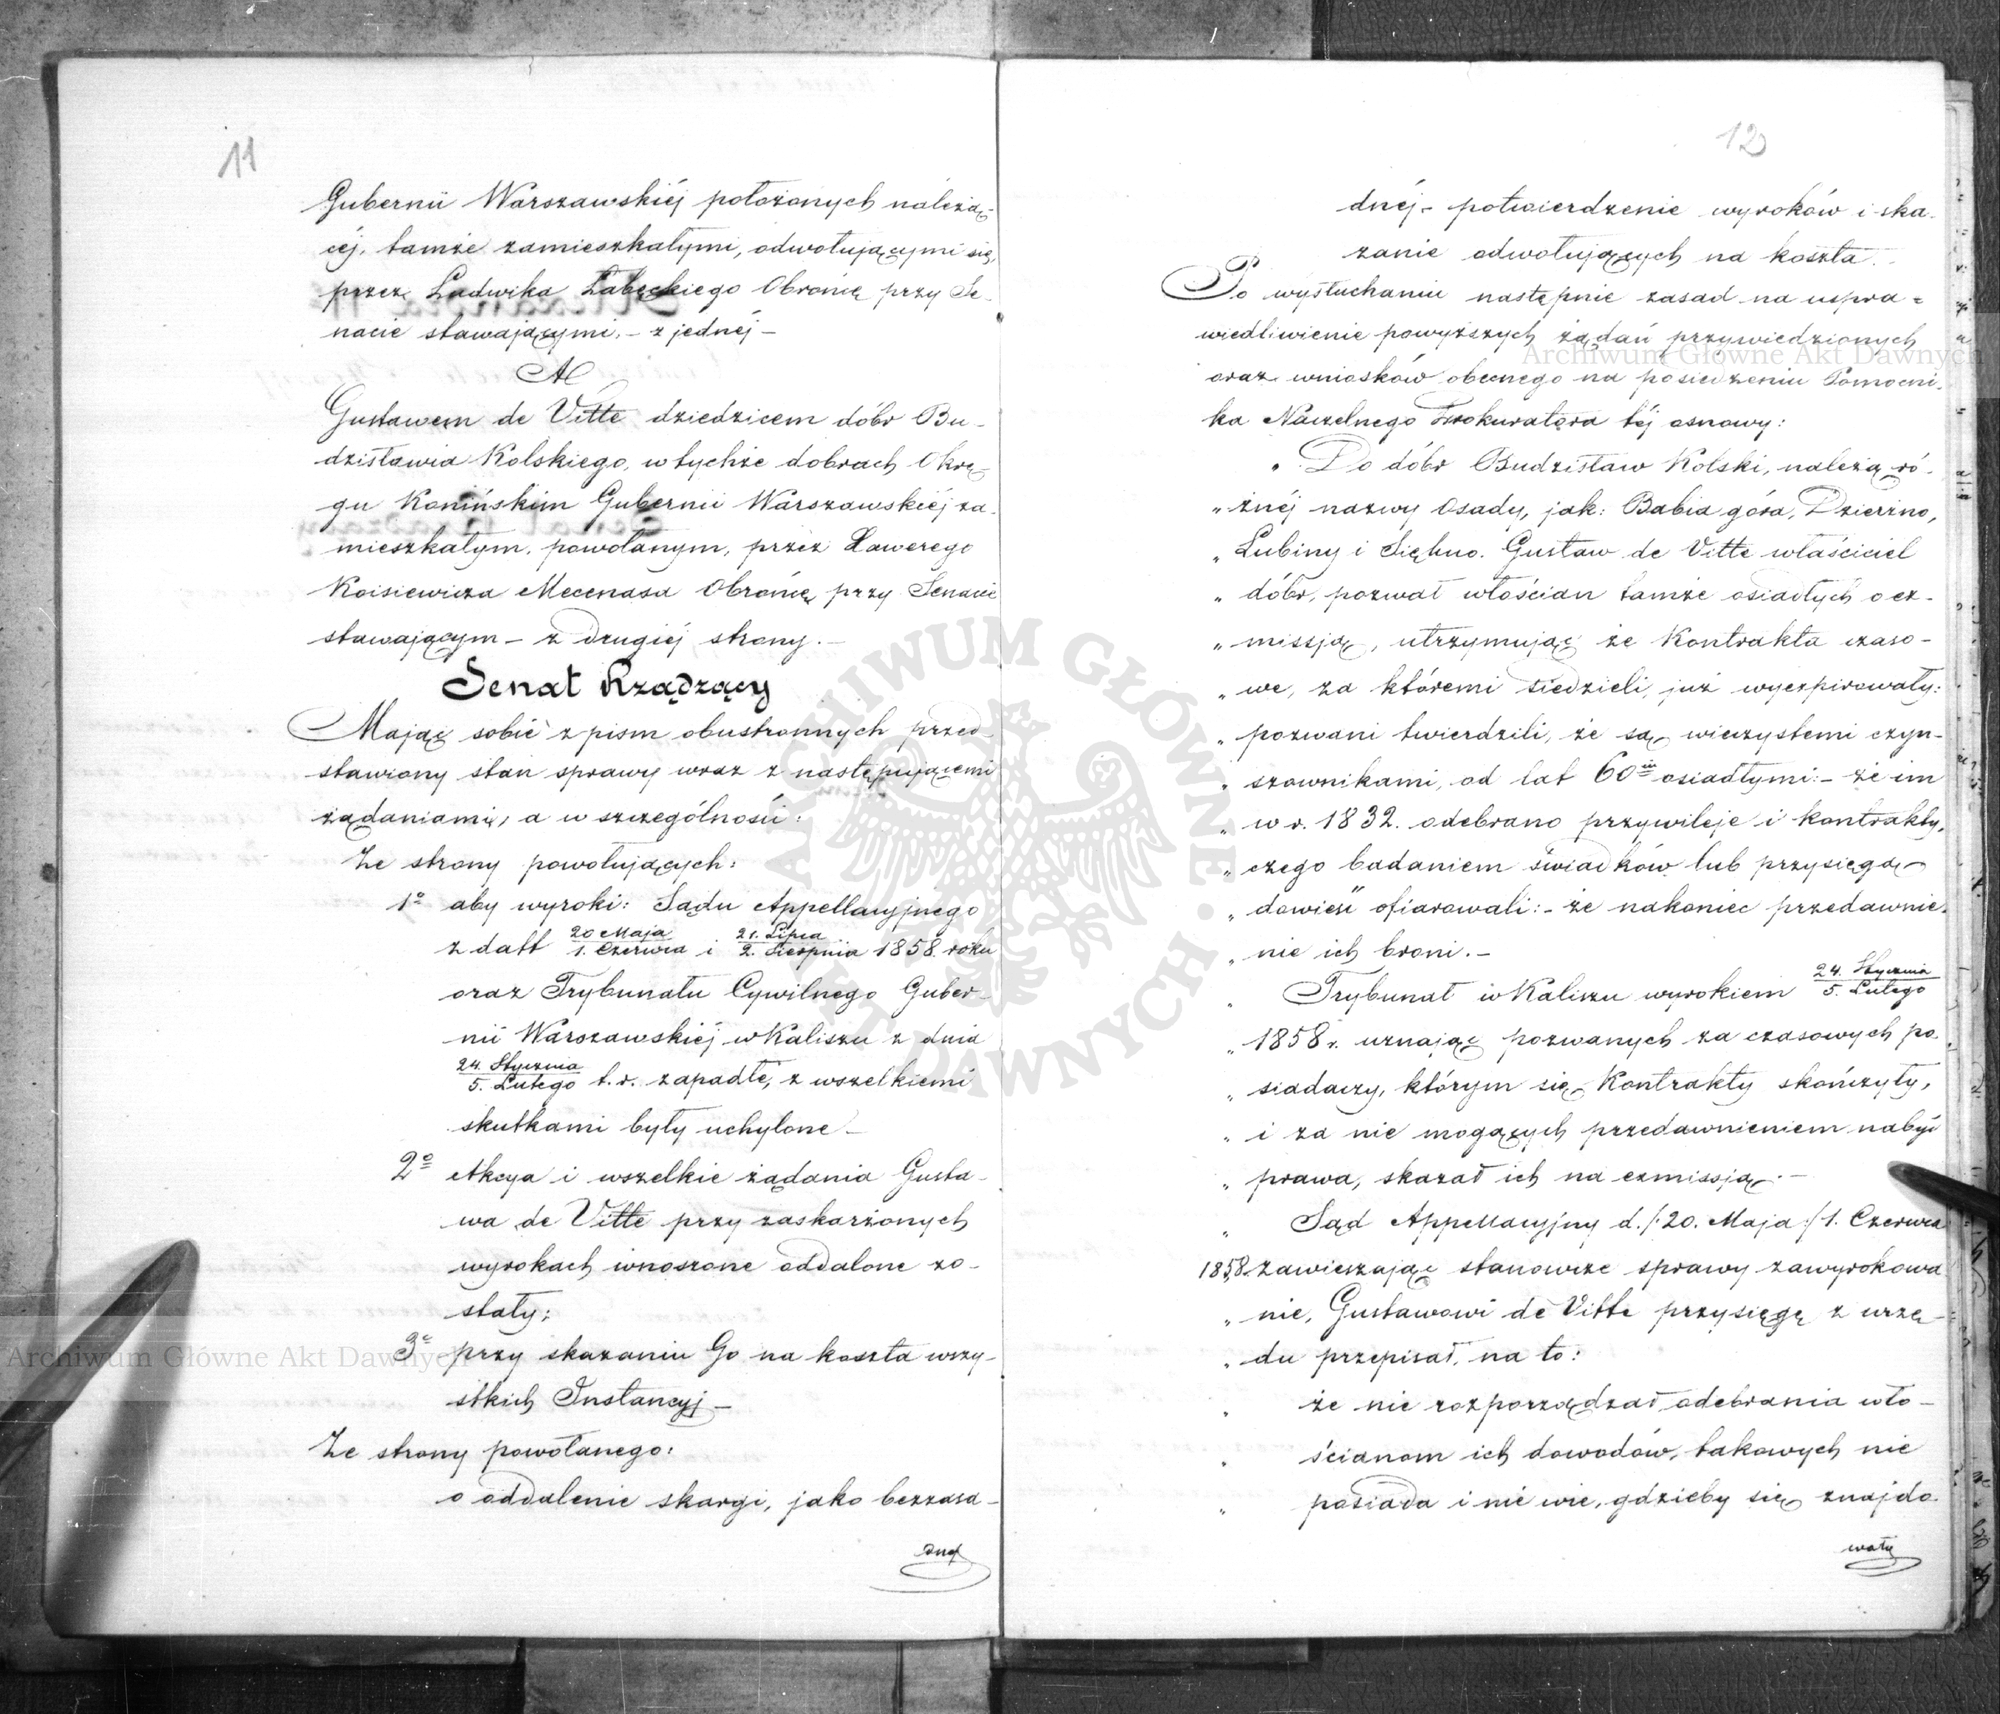 11
Gubernii Warszawskiéj położonych należą-
céj, tamże zamieszkałymi, odwołującymi się,
przez Ludwika Łabęckiego Obrońcę przy Se-
nacie stawającymi. – z jednéj –
A
Gustawem de Vitte dziedzicem dóbr Bu-
dzisławia Kolskiego, w tychże dobrach Okrę-
gu Konińskim Gubernii Warszawskiéj za-
mieszkałym, powołanym, przez Xawerego
Koisiewicza Mecenasa Obrońcę przy Senacie
stawającym – z drugiéj strony. –
Senat Rządzący
Mając sobie z pism obustronnych przed-
stawiony stan sprawy wraz z następującemi
żądaniami, a w szczególności:
Ze strony powołujących:
1o aby wyroki: Sądu Appellacyjnego
z datt 20 Maja / 1. Czerwca i 21. Lipca / 2. Sierpnia 1858. roku
oraz Trybunału Cywilnego Guber-
nii Warszawskiéj w Kaliszu z dnia
24. Stycznia / 5. Lutego t. r. zapadłe, z wszelkiemi
skutkami były uchylone –
2o Akcya i wszelkie żądania Gusta-
wa de Vitte przy zaskarżonych
wyrokach wnoszone oddalone zo-
stały;
3o przy skazaniu Go na koszta wszy-
stkich Instancyj –
Ze strony powołanego:
o oddalenie skargi, jako bezzasa-
dnéj
12
dnéj – potwierdzenie wyroków i ska-
zanie odwołujących na koszta. –
Po wysłuchaniu następnie zasad na uspra-
wiedliwienie powyższych żądań przywiedzionych
oraz wniosków obecnego na posiedzeniu Pomocni-
ka Naczelnego Prokuratora téj osnowy:
„ Do dóbr Budzisław Kolski, należą ró-
„ żnéj nazwy Osady, jak: Babia góra, Dzierzno,
„ Lubiny i Siękno. Gustaw de Vitte właściciel
„ dóbr, pozwał włościan tamże osiadłych o ex-
„ missją, utrzymując że Kontrakta czaso-
„ we, za któremi siedzieli, już wyexpirowały:
„ pozwani twierdzili, że są wieczystemi czyn-
„ szownikami, od lat 60iu osiadłymi: – że im
„ w r. 1832. odebrano przywileje i kontrakty,
„ czego badaniem świadków lub przysięgą
„ dowieść ofiarowali: – że nakoniec przedawnie-
„ nie ich broni. –
„ Trybunał w Kaliszu wyrokiem 24. Stycznia / 5. Lutego
„ 1858 r. uznając pozwanych za czasowych po-
„ siadaczy, którym się Kontrakty skończyły,
„ i za nie mogących przedawnieniem nabyć
„ prawa, skazał ich na exmissją. –
„ Sąd Appellacyjny d. /: 20. Maja :/ 1. Czerwca
1858. zawieszając stanowcze sprawy zawyrokowa-
„ nie, Gustawowi de Vitte przysięgę z urzę-
„ du przepisał, na to:
„ że nie rozporządzał odebrania wło-
„ ścianom ich dowodów, takowych nie
„ posiada i nie wie, gdzieby się znajdo-
wały
Archiwum Główne Akt Dawnych
ARCHIWUM GŁÓWNE • AKT DAWNYCH •
Archiwum Główne Akt Dawnych